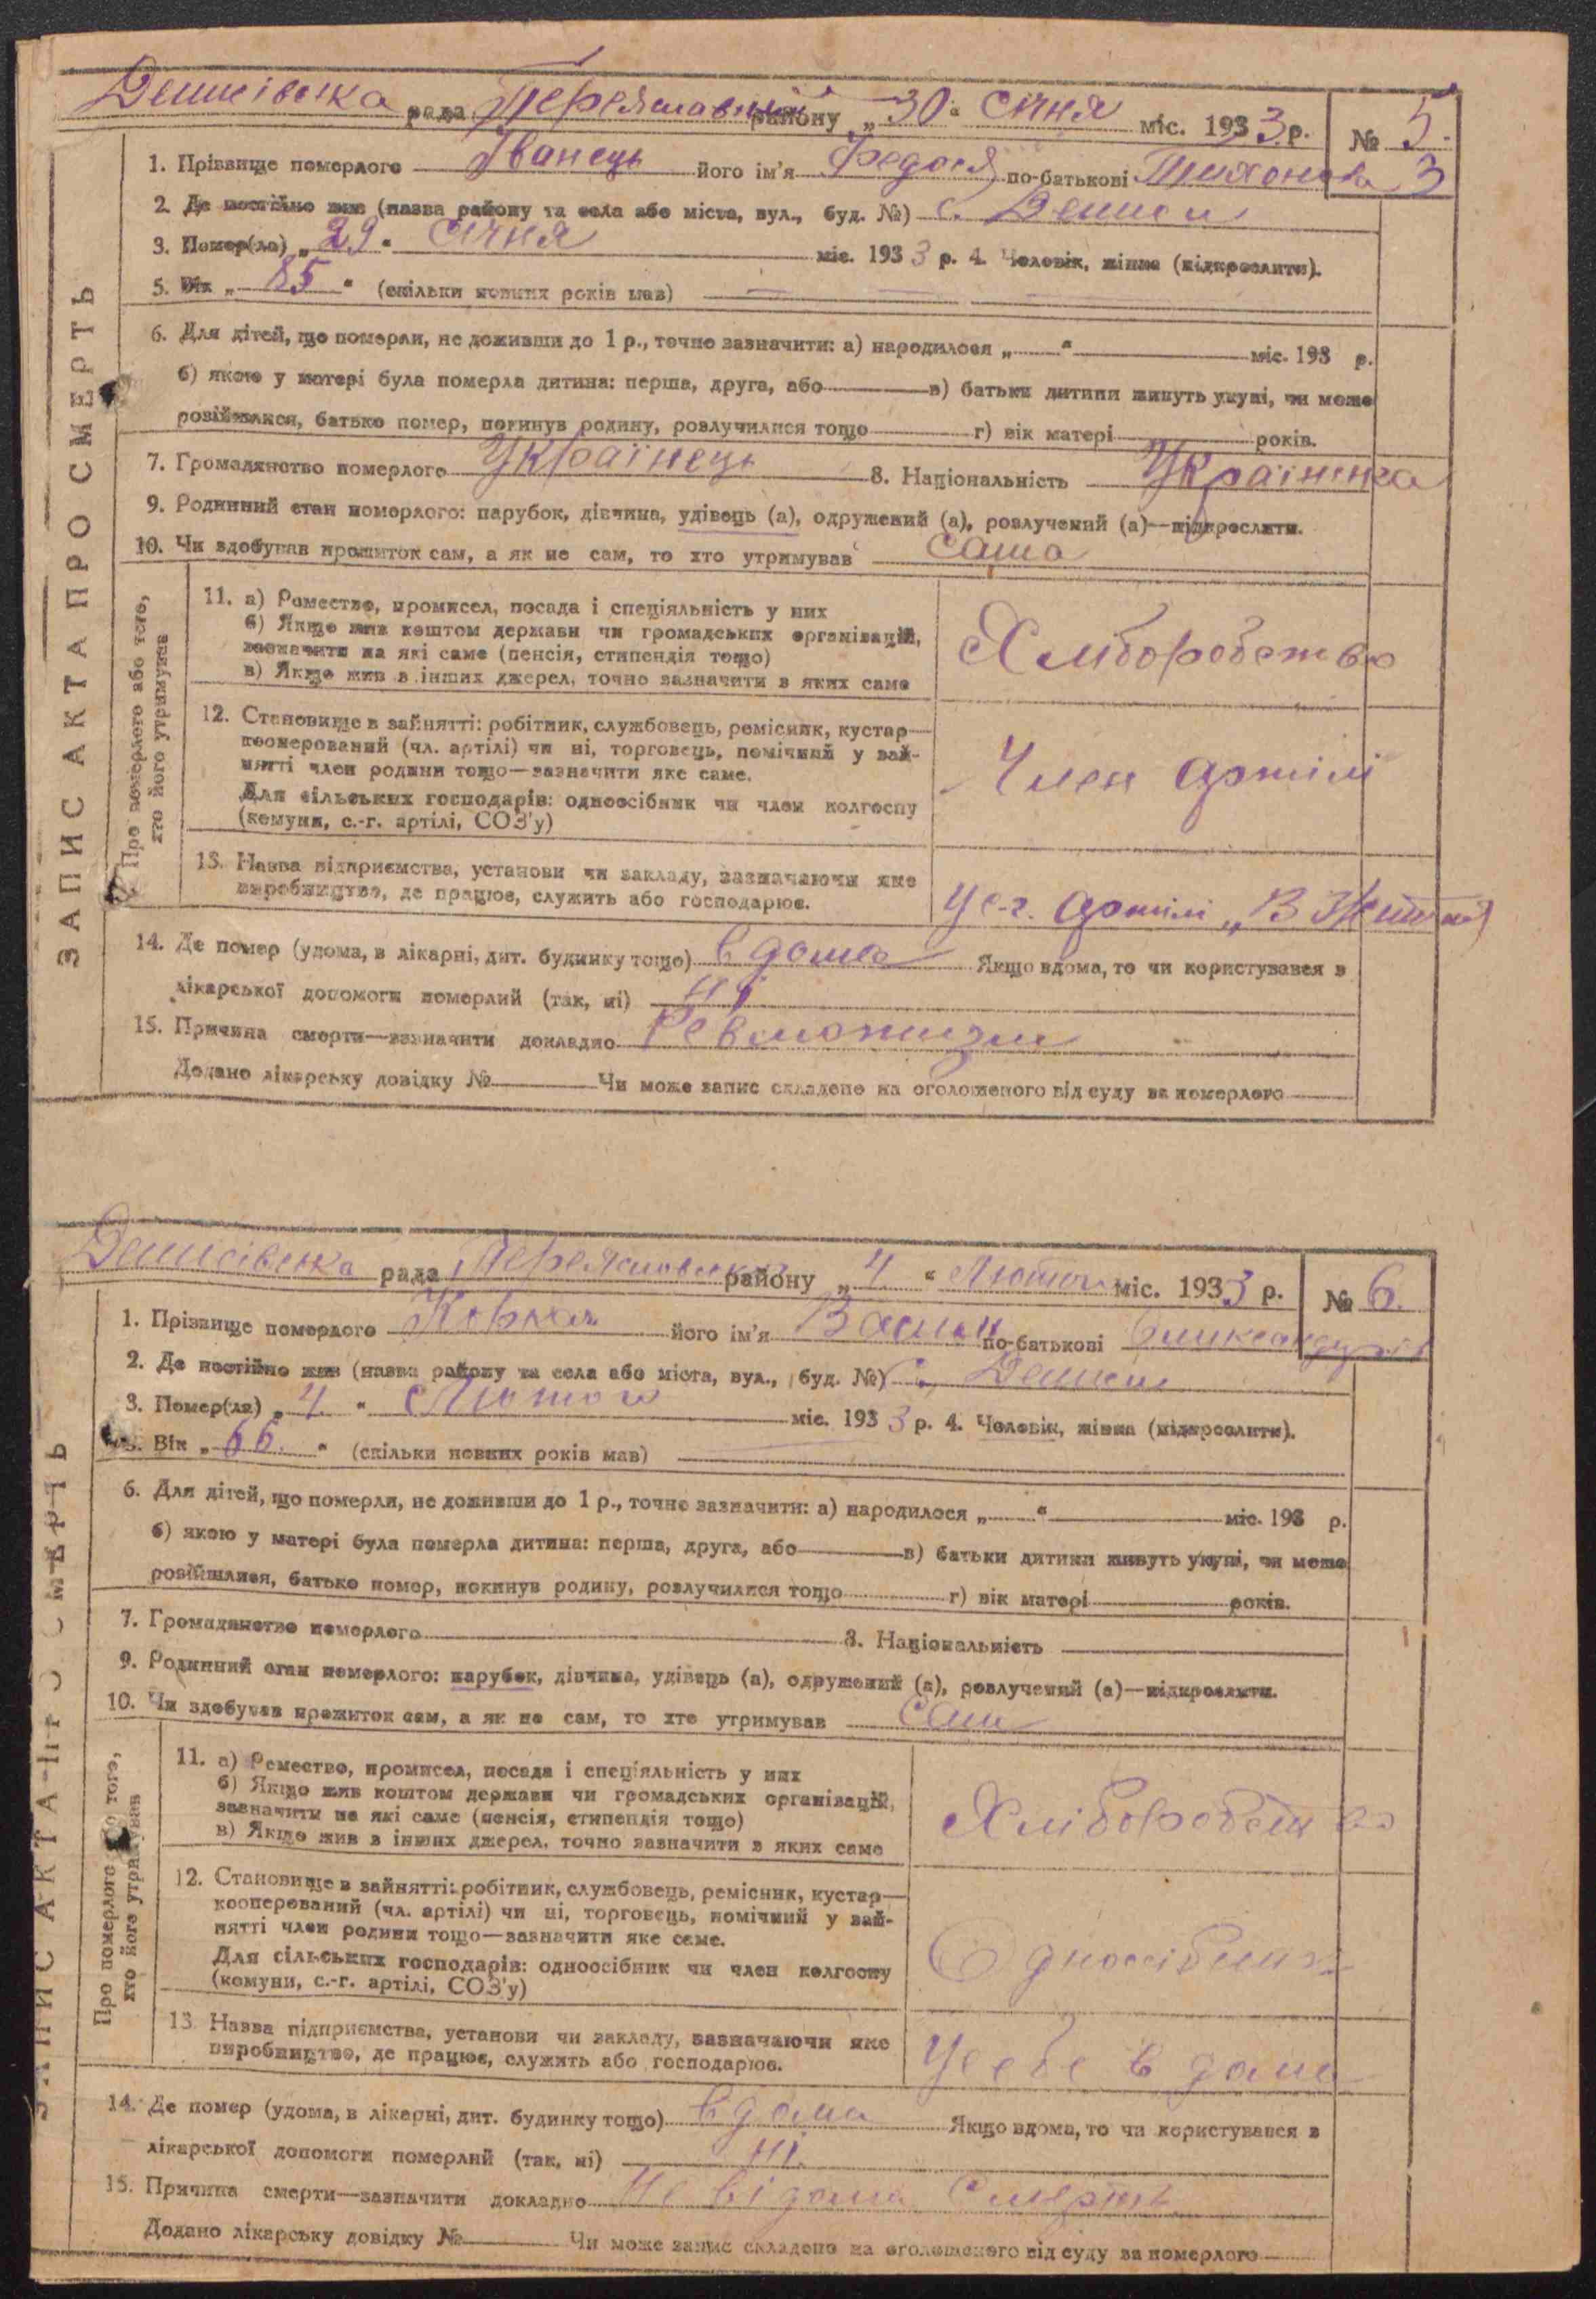 Денисівська рада Переяславський району „30“ січня міс. 1933 р. № 5.
ЗАПИС АКТА ПРО СМЕРТЬ
1. Прізвище померлого Іванець його ім'я Федося по-батькові Тихонова 3
2. Де постійно жив (назва району та села або міста, вул., буд. №) с. Дениси
3. Помер(ла) „29“ січня міс. 1933 р. 4. Чоловік, жінка (підкреслити).
5. Вік „85“ (скільки повних років мав)
6. Для дітей, що померли, не доживши до 1 р., точно зазначити: а) народилося „ “ міс. 193 р.
б) якою у матері була померла дитина: перша, друга, або в) батьки дитини живуть укупі, чи може
розійшлися, батько помер, покинув родину, розлучилися тощо г) вік матері років.
7. Громадянство померлого Українець 8. Національність Українка
9. Родинний стан померлого: парубок, дівчина, удівець (а), одружений (а), розлучений (а)—підкреслити.
10. Чи здобував прожиток сам, а як не сам, то хто утримував сама
Про померлого або того, хто його утримував
11. а) Ремество, промисел, посада і спеціяльність у них
б) Якщо жив коштом держави чи громадських організацій,
зазначити на які саме (пенсія, стипендія тощо)
в) Якщо жив з інших джерел, точно зазначити з яких саме
Хліборобство
12. Становище в зайнятті: робітник, службовець, ремісник, кустар—
кооперований (чл. артілі) чи ні, торговець, помічний у зай-
нятті член родини тощо—зазначити яке саме.
Для сільських господарів: одноосібник чи член колгоспу
(комуни, с.-г. артілі, СОЗ'у)
Член артілі
13. Назва підприємства, установи чи закладу, зазначаючи яке
виробництво, де працює, служить або господарює.
У с-г. артілі „13
14. Де помер (удома, в лікарні, дит. будинку тощо) вдома Якщо вдома, то чи користувався з
лікарської допомоги померлий (так, ні) ні
15. Причина смерти—зазначити докладно Ревматизм
Додано лікарську довідку № Чи може запис складено на оголошеного від суду за померлого
Денисівська рада Переяславський району „4“ Лютого міс. 1933 р. № 6.
ЗАПИС АКТА ПРО СМЕРТЬ
1. Прізвище померлого його ім'я по-батькові
2. Де постійно жив (назва району та села або міста, вул., буд. №) с. Дениси
3. Помер(ла) „4“ Лютого міс. 1933 р. 4. Чоловік, жінка (підкреслити).
5. Вік „66.“ (скільки повних років мав)
6. Для дітей, що померли, не доживши до 1 р., точно зазначити: а) народилося „ “ міс. 193 р.
б) якою у матері була померла дитина: перша, друга, або в) батьки дитини живуть укупі, чи може
розійшлися, батько помер, покинув родину, розлучилися тощо г) вік матері років.
7. Громадянство померлого 8. Національність
9. Родинний стан померлого: парубок, дівчина, удівець (а), одружений (а), розлучений (а)—підкреслити.
10. Чи здобував прожиток сам, а як не сам, то хто утримував Сам
Про померлого або того, хто його утримував
11. а) Ремество, промисел, посада і спеціяльність у них
б) Якщо жив коштом держави чи громадських організацій,
зазначити на які саме (пенсія, стипендія тощо)
в) Якщо жив з інших джерел, точно зазначити з яких саме
Хліборобство
12. Становище в зайнятті: робітник, службовець, ремісник, кустар—
кооперований (чл. артілі) чи ні, торговець, помічний у зай-
нятті член родини тощо—зазначити яке саме.
Для сільських господарів: одноосібник чи член колгоспу
(комуни, с.-г. артілі, СОЗ'у)
Одноосібник
13. Назва підприємства, установи чи закладу, зазначаючи яке
виробництво, де працює, служить або господарює.
У себе вдома
14. Де помер (удома, в лікарні, дит. будинку тощо) вдома Якщо вдома, то чи користувався з
лікарської допомоги померлий (так, ні) ні.
15. Причина смерти—зазначити докладно Не відома Смерть
Додано лікарську довідку № Чи може запис складено на оголошеного від суду за померлого